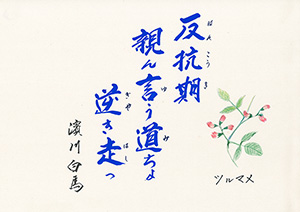 反抗期
はんこう き
親ん言う道ちょ
ゆ み
逆き走っ
ぎや はし
濱川 白馬
ツルマメ